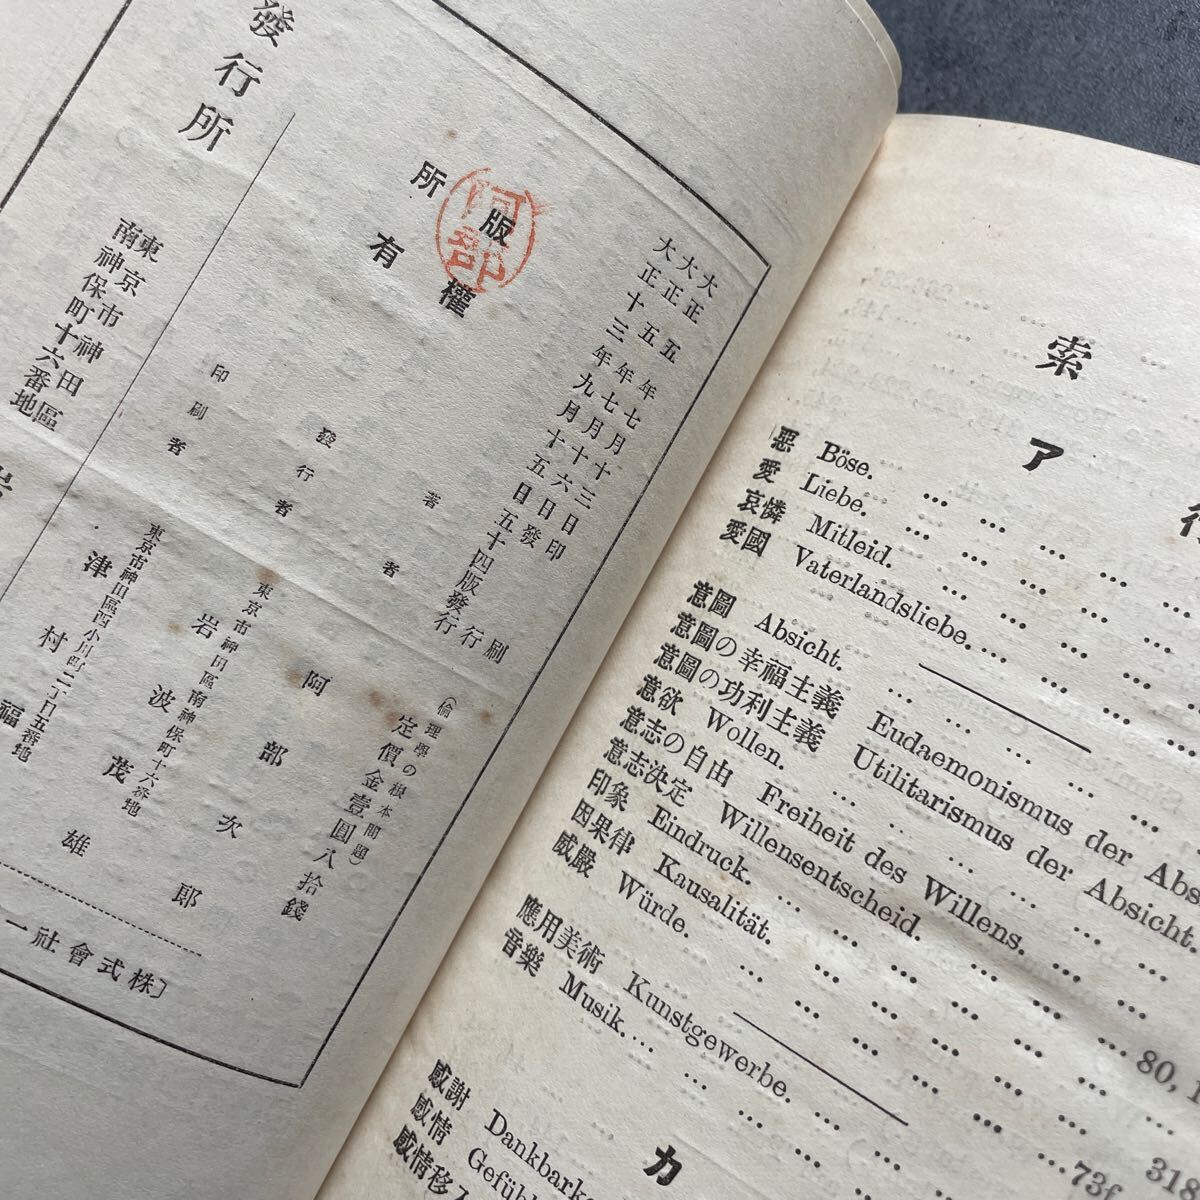 大正五年七月十三日印刷
大正五年七月十六日發行
大正十三年九月十五日五十四版發行
版權
所有
阿部
（倫理學の根本問題）
定價金壹圓八拾錢
著者
阿部次郎
發行者
東京市神田區南神保町十六番地
岩波茂雄
印刷者
東京市神田區西小川町二丁目五番地
津村福
發行所
東京市神田區
南神保町十六番地
岩
〔株式會社一
索
ア
惡 Böse.
愛 Liebe.
哀憐 Mitleid.
愛國 Vaterlandsliebe.
意圖 Absicht.
意圖の幸福主義 Eudaemonismus der Abs
意圖の功利主義 Utilitarismus der Absicht.
意欲 Wollen.
意志の自由 Freiheit des Willens.
意志決定 Willensentscheid.
印象 Eindruck.
因果律 Kausalität.
威嚴 Würde.
應用美術 Kunstgewerbe.
音樂 Musik.
80, 1
318
73f
カ
感謝 Dankbarke
感情 Gefühl
感情移入